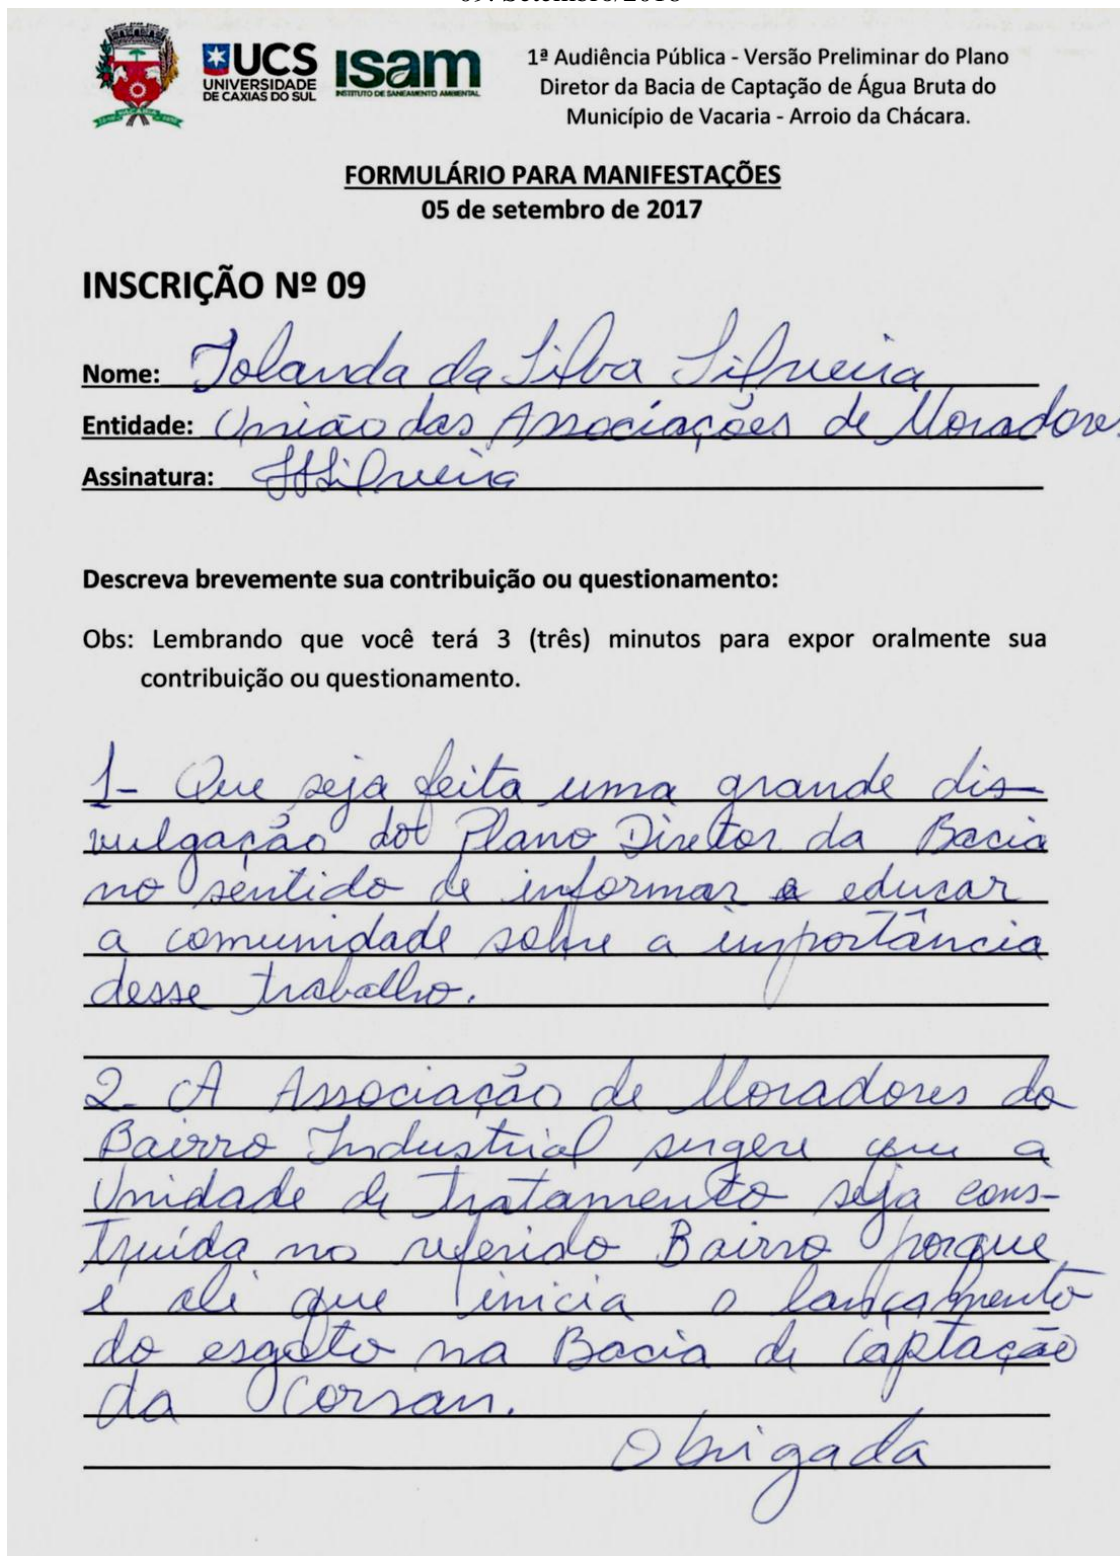 UCS
UNIVERSIDADE
DE CAXIAS DO SUL
Isam
INSTITUTO DE SANEAMENTO AMBIENTAL
1ª Audiência Pública - Versão Preliminar do Plano
Diretor da Bacia de Captação de Água Bruta do
Município de Vacaria - Arroio da Chácara.
FORMULÁRIO PARA MANIFESTAÇÕES
05 de setembro de 2017
INSCRIÇÃO Nº 09
Nome: Iolanda da Silva Silveira
Entidade: União das Associações de Moradores
Assinatura: Silveira
Descreva brevemente sua contribuição ou questionamento:
Obs: Lembrando que você terá 3 (três) minutos para expor oralmente sua
contribuição ou questionamento.
1- Que seja feita uma grande di-
vulgação do Plano Diretor da Bacia
no sentido de informar e educar
a comunidade sobre a importância
desse trabalho.
2- A Associação de Moradores do
Bairro Industrial sugere que a
Unidade de Tratamento seja cons-
truída no referido Bairro porque
é ali que inicia o lançamento
do esgoto na Bacia de Captação
da Corsan.
Obrigada